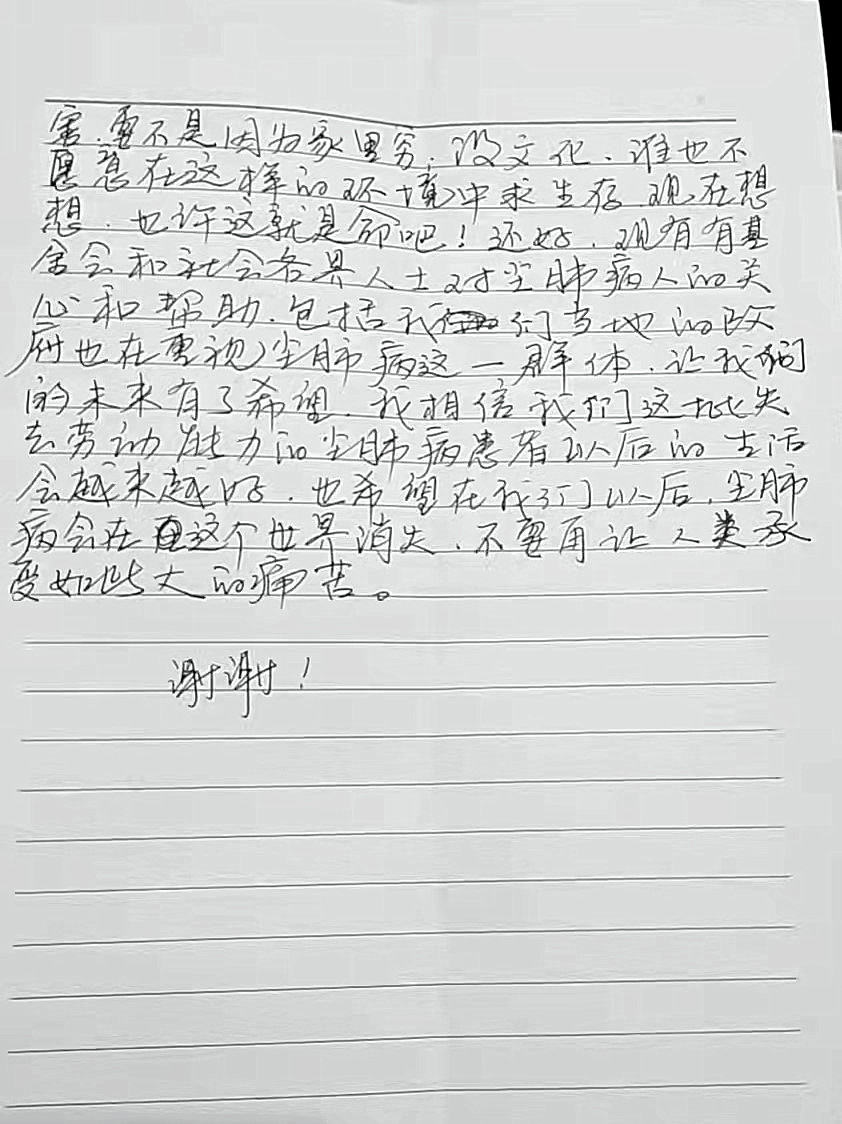 害.要不是因为家里穷,没文化.谁也不
愿意在这样的环境中求生存.现在想
想.也许这就是命吧!还好.现有有基
金会和社会各界人士对尘肺病人的关
心和帮助.包括我们当地的政
府也在重视尘肺病这一群体.让我们
的未来有了希望.我相信我们这些失
去劳动能力的尘肺病患者以后的生活
会越来越好.也希望在我们以后.尘肺
病会在这个世界消失.不要再让人类承
受如此大的痛苦。
谢谢!